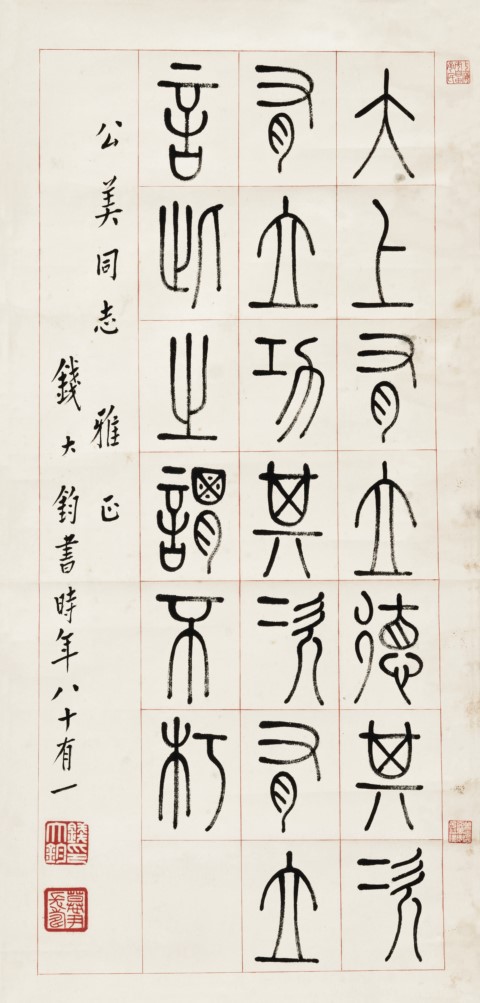 大上有立德其次
有立功其次有立
言此之謂不朽
公美同志 雅正
錢大鈞書時年八十有一
錢大鈞印